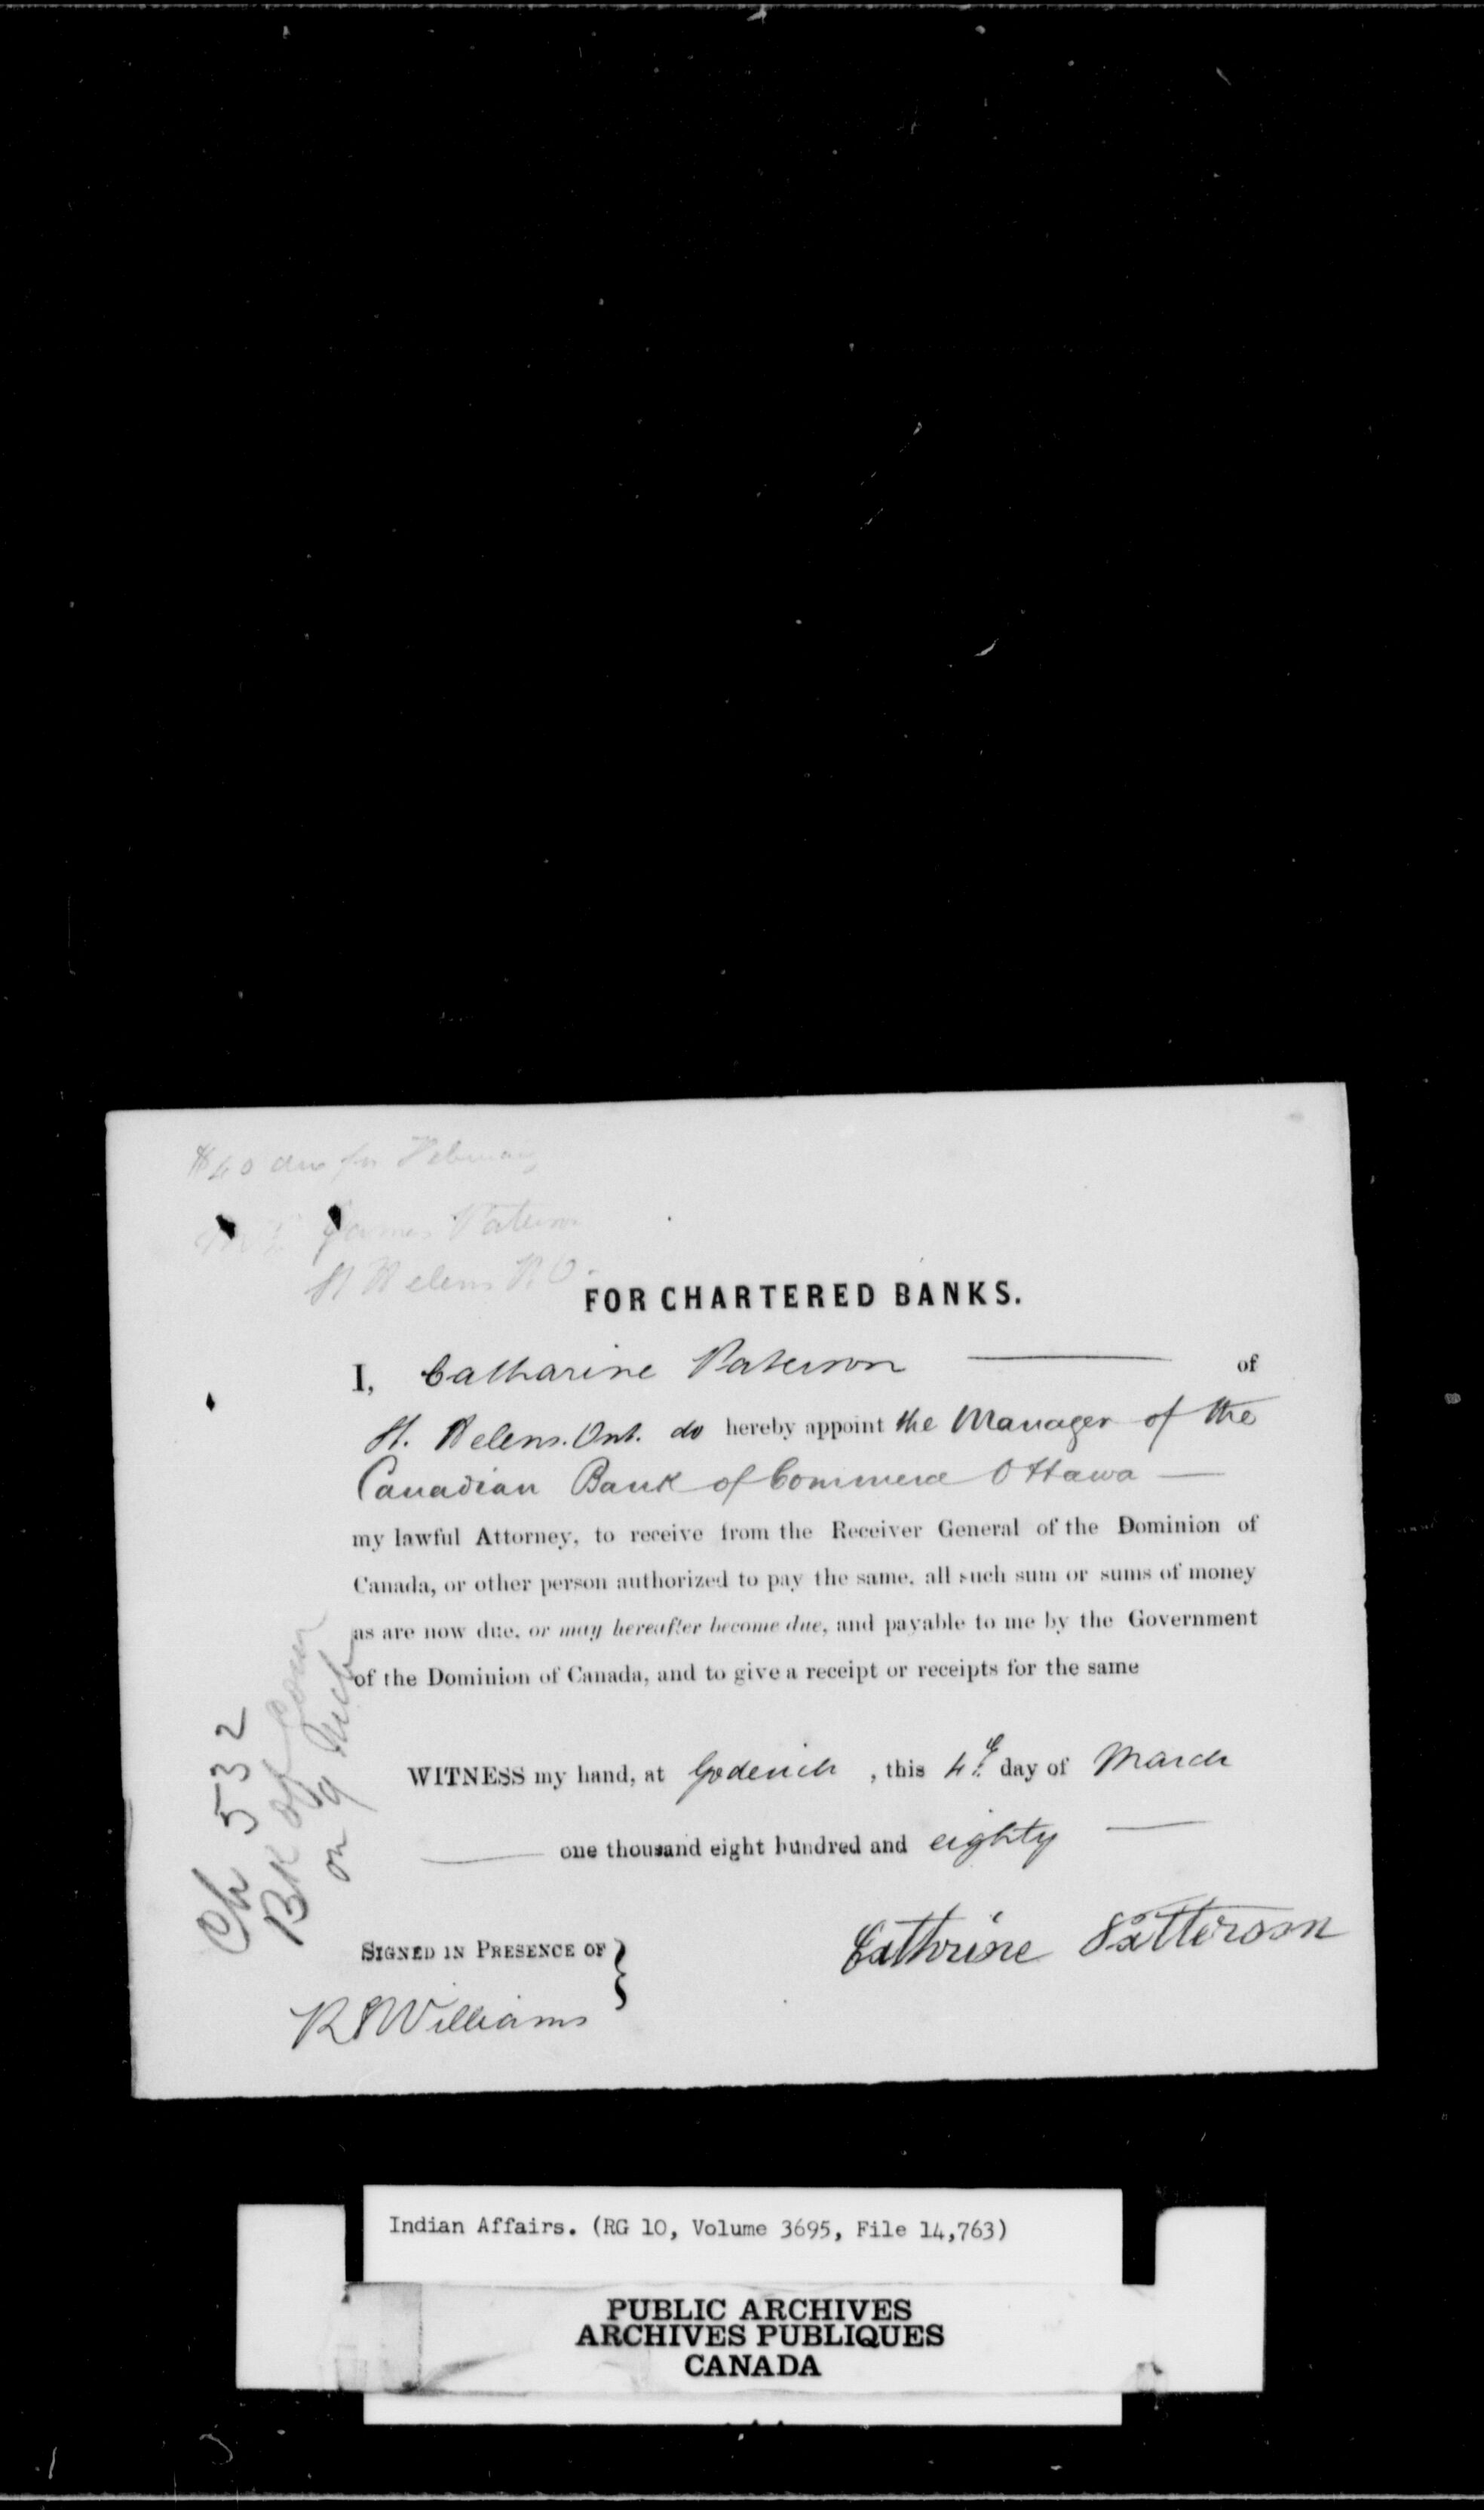 $40 due for February
James Paterson
St Helens P.O.
FOR CHARTERED BANKS.
I, Catharine Paterson of
St. Helens. Ont. do hereby appoint the Manager of the
Canadian Bank of Commerce Ottawa
my lawful Attorney, to receive from the Receiver General of the Dominion of
Canada, or other person authorized to pay the same, all such sum or sums of money
as are now due, or may hereafter become due, and payable to me by the Government
of the Dominion of Canada, and to give a receipt or receipts for the same
WITNESS my hand, at Goderich, this 4th day of March
one thousand eight hundred and eighty
Cathrine Patterson
SIGNED IN PRESENCE OF
R S Williams
Ch 532
Bk of Com
on 9 Mch
Indian Affairs. (RG 10, Volume 3695, File 14,763)
PUBLIC ARCHIVES
ARCHIVES PUBLIQUES
CANADA